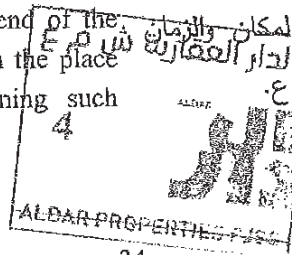 end of the
the place
ning such
لمكان والزمان
لدار العقارية ش م ع
ع.
4
ALDAR
ALDAR PROPERTIES PJSC